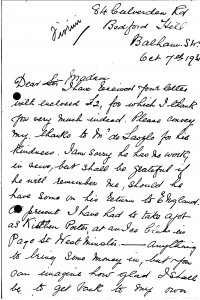 84 Culverden Rd
Bedford Hill
Balham. S.W.
Oct 7th 19
Dear Madam
I have received your letter
with enclosed £2, for which I thank
you very much indeed. Please convey
my thanks to Mr de Laszlo for his
kindness. I am sorry he has no work,
in view, but shall be grateful if
he will remember me, should he
have some on his return to England.
At present I have had to take a job
as Kitchen Porter, at an
Page St Westminster — anything
to bring some money in, but you
can imagine how glad I shall
be to get back to my own